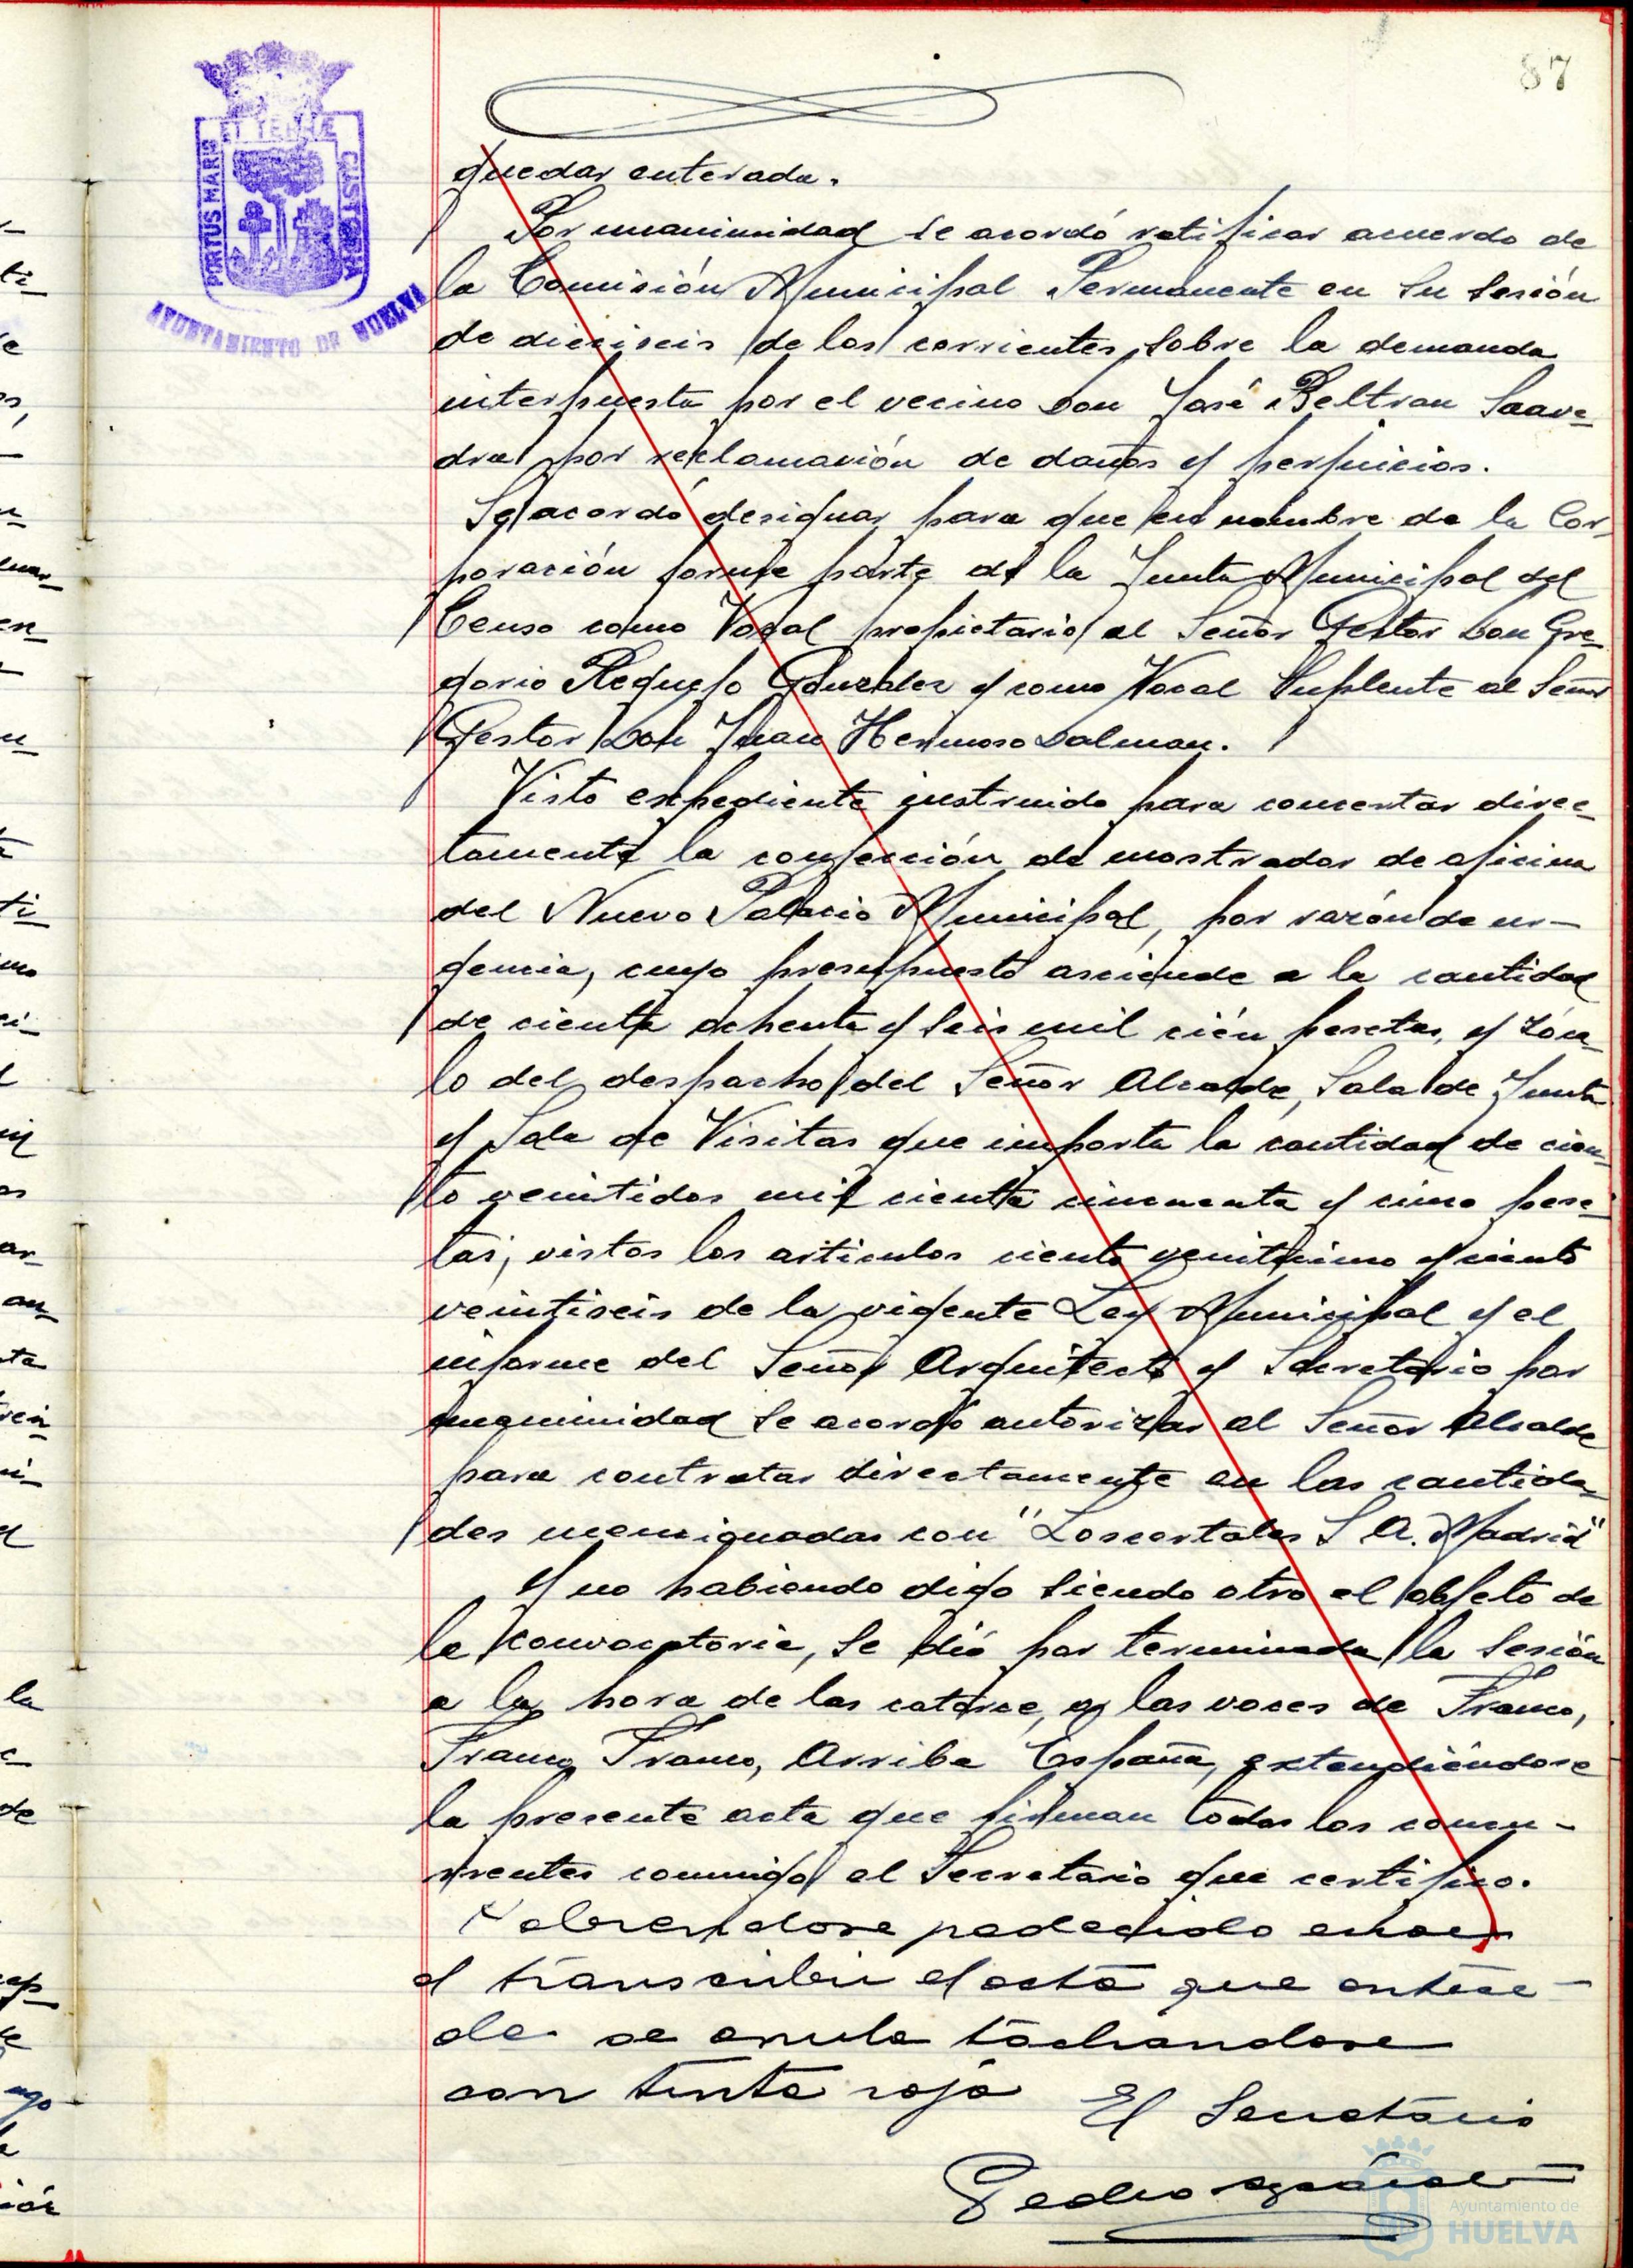 87
PORTUS MARIS ET TERRAE CUSTODIA
AYUNTAMIENTO DE HUELVA
quedar enterada.
Por unanimidad se acordó ratificar acuerdo de
la Comisión Municipal Permanente en su sesión
de dieciseis de los corrientes, sobre la demanda
interpuesta por el vecino Don José Beltran Saave-
dra por reclamación de daños y perjuicios.
Se acordó designar para que en nombre de la Cor-
poración forme parte de la Junta Municipal del
Censo como Vocal propietario al Señor Gestor Don Gre-
gorio Requejo Gonzalez y como Vocal Suplente al Señor
Gestor Don Juan Hermoso Dalman.
Visto expediente instruido para concertar direc-
tamente la confección de mostrador de oficina
del Nuevo Palacio Municipal, por razón de ur-
gencia, cuyo presupuesto asciende a la cantidad
de ciento ochenta y seis mil cién pesetas, y
lo del despacho del Señor Alcalde, Sala de Junta
y Sala de Visitas que importa la cantidad de cien-
to veintidos mil ciento cincuenta y cinco pese-
tas, vistos los articulos ciento y ciento
veintiseis de la vigente Ley Municipal y el
informe del Señor Arquitecto y Secretario por
unanimidad se acordó autorizar al Señor Alcalde
para contratar directamente en las cantida-
des con "Loscertales S A. Madrid"
Y no habiendo digo siendo otro el objeto de
la convocatoria, se dió por terminada la sesión
a la hora de las catorce, a las voces de Franco,
Franco, Franco, Arriba España, extendiéndose
la presente acta que firman todos los concu-
rrentes conmigo el Secretario que certifico.
Habiendose padecido error
al transcribir el acta que antece-
de se anula tachandose
con tinta roja El Secretario
Pedro
Ayuntamiento de
HUELVA